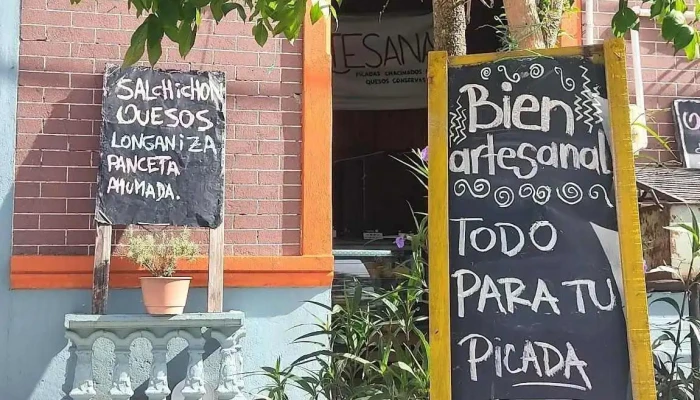 SALCHICHON
QUESOS
LONGANIZA
PANCETA
AHUMADA.
ESANA
PICADAS
QUESOS CONSERVAS
Bien
artesanal
TODO
PARA TU
PICADA